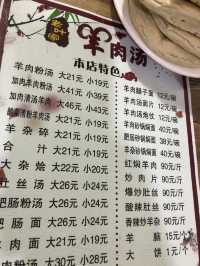 老叶家
羊肉汤
本店特色
羊肉粉汤 大21元 小19元
加肉羊肉粉汤 大41元 小39元
加肉清汤羊肉 大46元 小43元
大26元 小24元
羊杂碎 大21元 小19元
合汁 大21元 小19元
大杂烩 大22元 小20元
肚丝汤 大26元 小24元
肥肠面 大26元 小24元
羊肉面 大21元 小19元
大30元 小28元
羊肉臊子面 12元/碗
羊肉汤面片 12元/碗
羊肉汤炮仗 12元/碗
羊肉砂锅焖面 42元/碗
肥肠砂锅焖面 38元/碗
羊杂砂锅焖面 38元/碗
红焖羊肉 90元/斤
炒肉片 90元/斤
爆炒肚丝 90元/斤
酸辣肚丝 90元/斤
香辣炒羊杂 90元/斤
羊脑 15元/个
大饼 1元/个